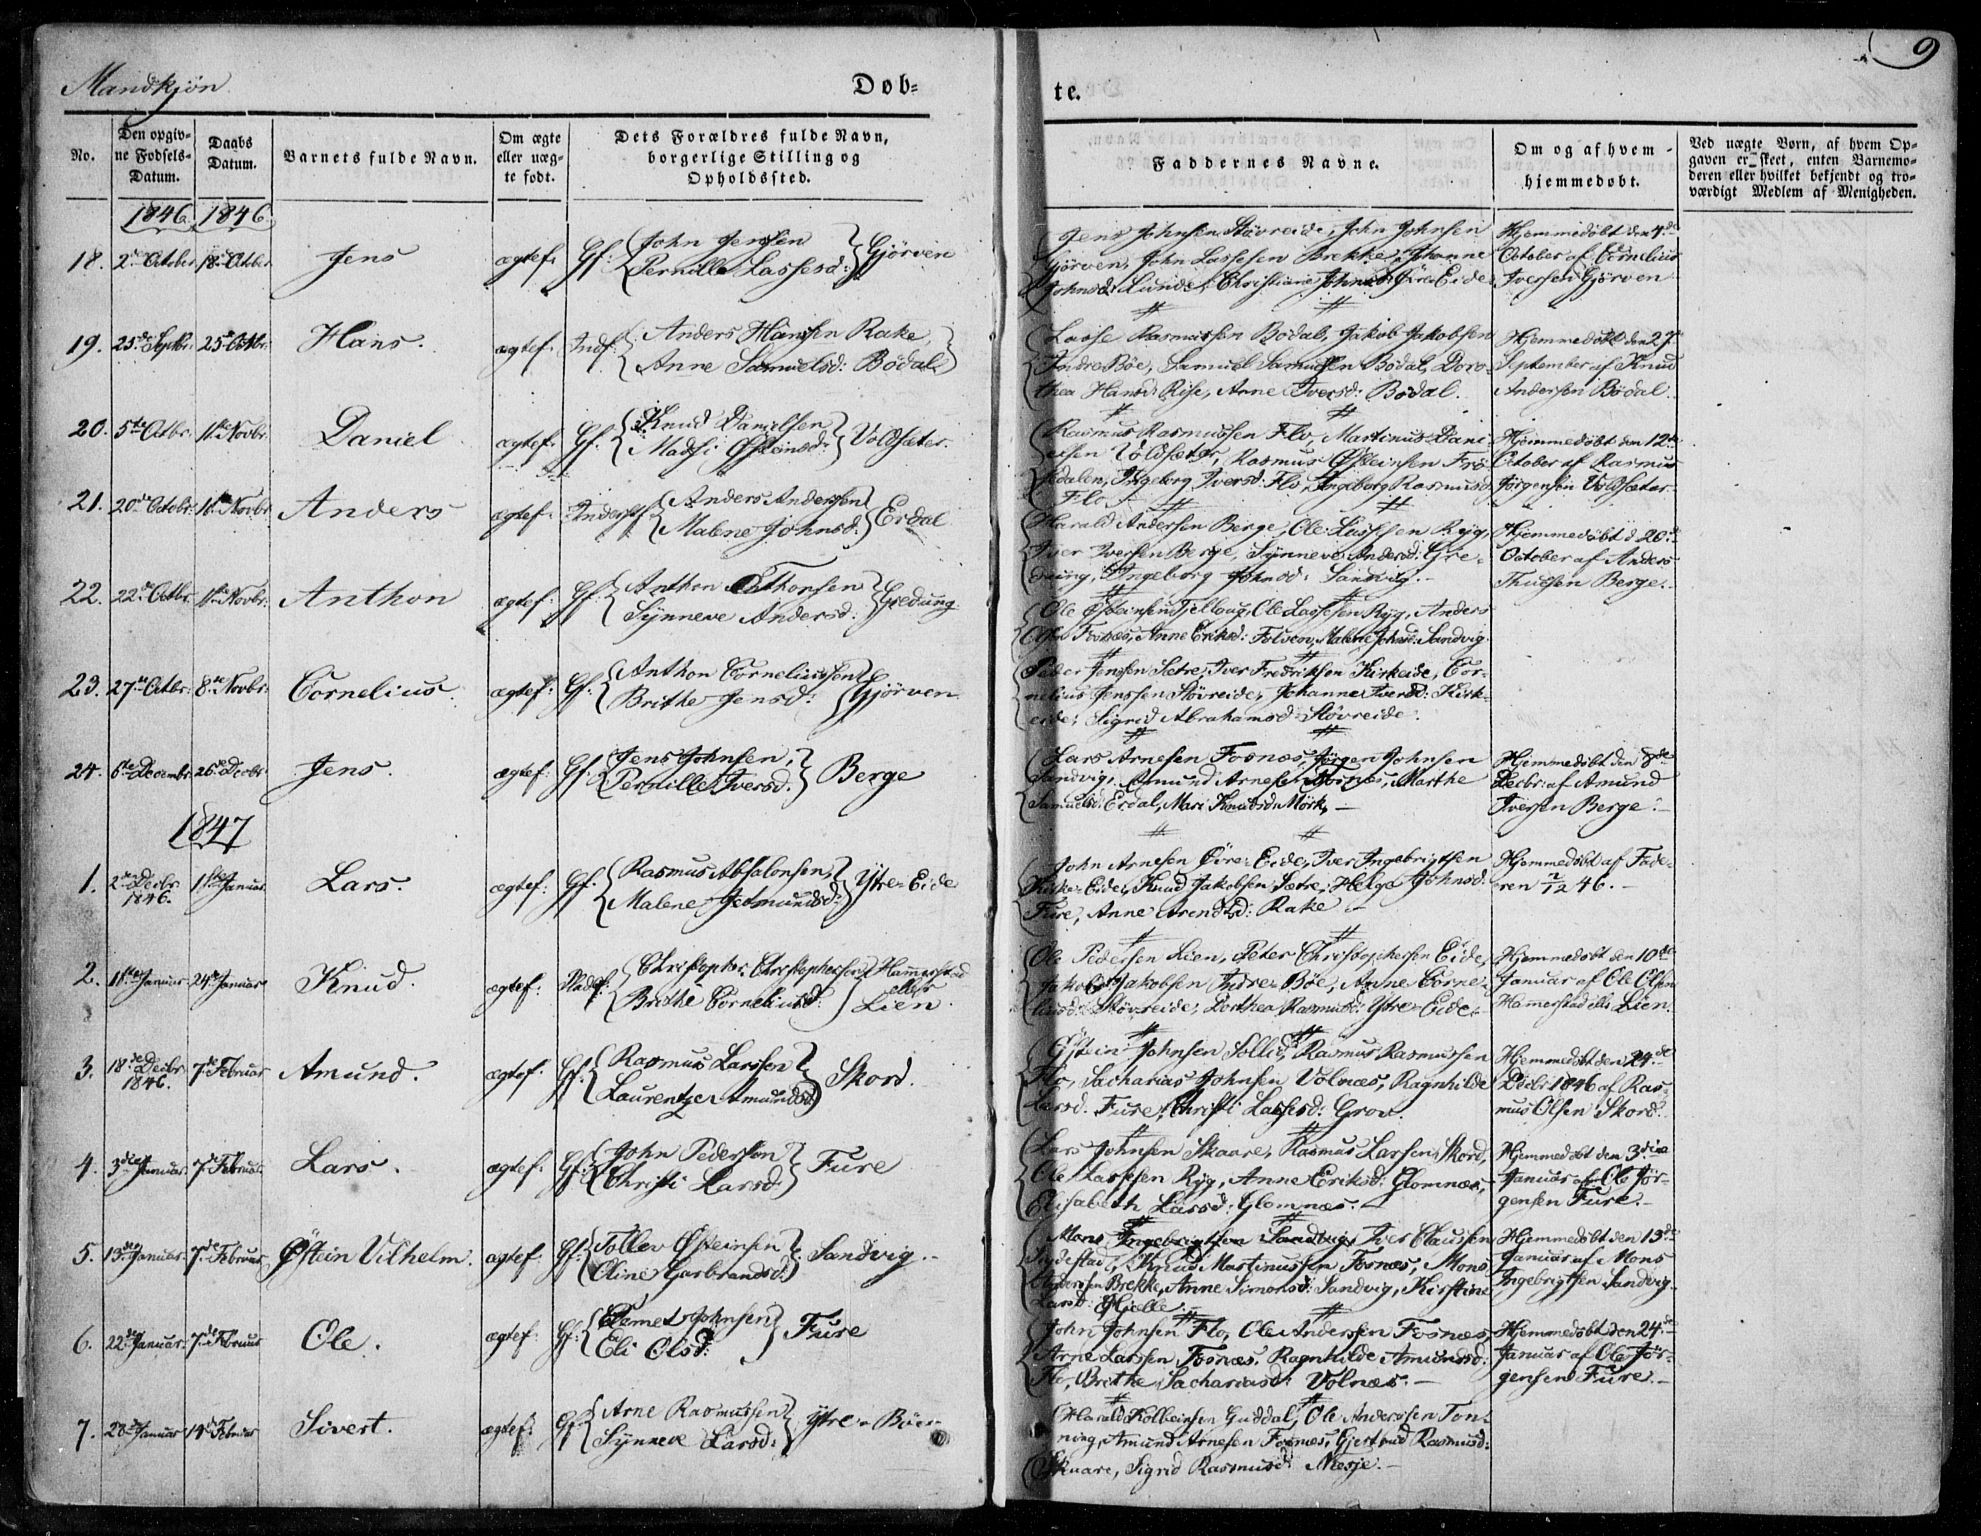 Mandkjøn.
Døb=
te.
9
No.
Den opgiv-
ne Fødsels-
Datum.
Daabs
Datum.
Barnets fulde Navn.
Om ægte
eller uæg-
te født.
Dets Forældres fulde Navn,
borgerlige Stilling og
Opholdssted.
Faddernes Navne.
Om og af hvem
hjemmedøbt.
Ved uægte Børn, af hvem Op-
gaven er skeet, enten Barnemo-
deren eller hvilket bekjendt og tro-
værdigt Medlem af Menigheden.
1846 1846
18. 2den Octbr 18de Octbr Jens ægtef: Gf: John Jensen Gjörven
Pernille Lassesd:
Jens Johnsen Stövreide, John Johnsen
Gjörven, John Lassesen Brekke, Johanne
Johnsd: Lunde, Christiane Johnsd: Øire-Eide
Hjemmedöbt den 4de
October af Cornelius
Iversen Gjörven
19. 25de Septbr: 25de Octbr: Hans. ægtef: Indf: Anders Hansen Rake,
Anne Samuelsd: Bödal
Lasse Rasmussen Bödal, Jakob Jakobsen
Indre Böe, Samuel Samuelsen Bödal, Doro-
thea Hansd: Rise, Anne Iversd: Bödal.
Hjemmedöbt den 27
September af Knud
Andersen Bödal.
20. 5te Octbr: 1ste Novbr: Daniel ægtef: Gf: Knud Danielsen Voldsæter.
Madsi Østeinsd:
Rasmus Rasmussen Flo, Martinus Dani-
elsen Voldsæter, Rasmus Østeinsen Frö-
sdalen, Ingeborg Iversd: Flo, Ingeborg Rasmusd:
Flo
Hjemmedöbt den 12te
October af Rasmus
Jörgensen Voldsæter.
21. 20de Octbr: 1ste Novbr: Anders ægtef: Inderst Anders Andersen Erdal
Malene Johnsd:
Harald Andersen Berge, Ole Lassesen Ryg,
Iver Iversen Berge, Synneve Andersd: Gre-
dung, Ingeborg Johnsd: Sandvig.
Hjemmedöbt d 20de
October af Anders
Berge.
22. 22de Octbr: 1ste Novbr: Anthon ægtef: Gf: Anthon Anthonsen Gredung
Synneve Andersd:
Ole Østeinsen Tjellaug, Ole Lassesen Ryg, Anders
Fosnæs, Anne Eriksd: Folven, Malene Johnsd: Sandvig.
23. 27de Octbr: 8de Novbr: Cornelius. ægtef: Gf: Anthon Corneliussen Gjörven
Brithe Jensd:
Peder Jensen Sætre, Iver Fredriksen Kirkeide, Cor-
nelius Jenssen Stövreide, Johanne Iversd: Kirk-
eide, Sigrid Abrahamsd: Stövreide.
24. 6te Decembr 26de Decbr: Jens. ægtef: Gf: Jens Johnsen, Berge
Pernille Iversd.
Lars Arnesen Fosnæs, Jörgen Johnsen
Sandvig, Amund Arnesen Fosnæs, Marthe
Samuelsd: Erdal, Mari Knudsd: Mörk,
Hjemmedöbt den 8de
Decbr: af Amund
Iversen Berge.
1847
1. 2den Decbr 1846. 1ste Januar Lars. ægtef: Gf: Rasmus Absalonsen Ytre-Eide
Malene Jetmundsd:
John Arnesen Øire-Eide, Iver Ingebrigtsen
Kirke-Eide, Knud Jakobsen Sætre, Helga Johnsd:
Fure, Anne Arendtsd: Rake
Hjemmedöbt af Fade-
ren 2/12 46.
2. Januar 24de Januar Knud. ægtef: Pladsf: Christopher Christophersen Hamerstad
eller
Brithe Corneliusd: Lien.
Ole Pedersen Lien, Peter Christophersen Eide,
Jakob Jakobsen Indre-Böe, Anne Corne-
liusd: Stövreide, Dorthea Rasmusd: Ytre-Eide.
Hjemmedöbt den 10de
Januar af Ole Olsen
Hamerstad ell: Lien.
3. 18de Decbr 1846. 7de Februar Amund. ægtef: Gf: Rasmus Larssen Skord.
Laurentze Amundsd:
Østein Johnsen Sollid, Rasmus Rasmussen
Flo, Sacharias Johnsen Volnæs, Ragnhilde
Larsd. Fure, Christi Lassesd: Grov.
Hjemmedöbt den 24de
Decbr 1846 af Ras-
mus Olsen Skord.
4. 3die Januar 7de Februar Lars. ægtef: Gf: John Pedersen Fure
Christi Larsd:
Lars Johnsen Skaare, Rasmus Larsen Skord,
Ole Lassesen Ryg, Anne Eriksd: Glomnæs,
Elisabeth Larsd: Glomnæs.
Hjemmedöbt den 3die
Januar af Ole Jör-
gensen Fure.
5. 13de Januar 7de Februar Østein Vilhelm. ægtef: Gf: Tollev Østeinsen Sandvig.
Eline Garbrandsd:
Mons Ingebrigtsen Sandvig, Iver Clausen
Indestad, Knud Martinussen Fosnæs, Mons
Andersen Brekke, Anne Simonsd: Sandvig, Kirstine
Larsd: Hjelle.
Hjemmedöbt den 13de
Januar af Mons
Ingebrigtsen Sandvig.
6. 22de Januar 7de Februar Ole. ægtef: Gf: Johnsen Fure
Eli Olsd:
John Johnsen Flo, Ole Anderssen Fosnæs,
Arne Larssen Fosnæs, Ragnhilde Amundsd:
Flo, Brithe Sachariasd: Volnæs.
Hjemmedöbt den 24de
Januar af Ole Jör-
gensen Fure.
7. 28de Januar 14de Februar Sivert. ægtef: Gf: Arne Rasmussen Ytre-Böe
Synneve Larsd:
Harald Kolbeinsen Guddal, Ole Anderssen Ton-
ning, Amund Arnesen Fosnæs, Gjertrud Rasmusd:
Skaare, Sigrid Rasmusd: Nesje.